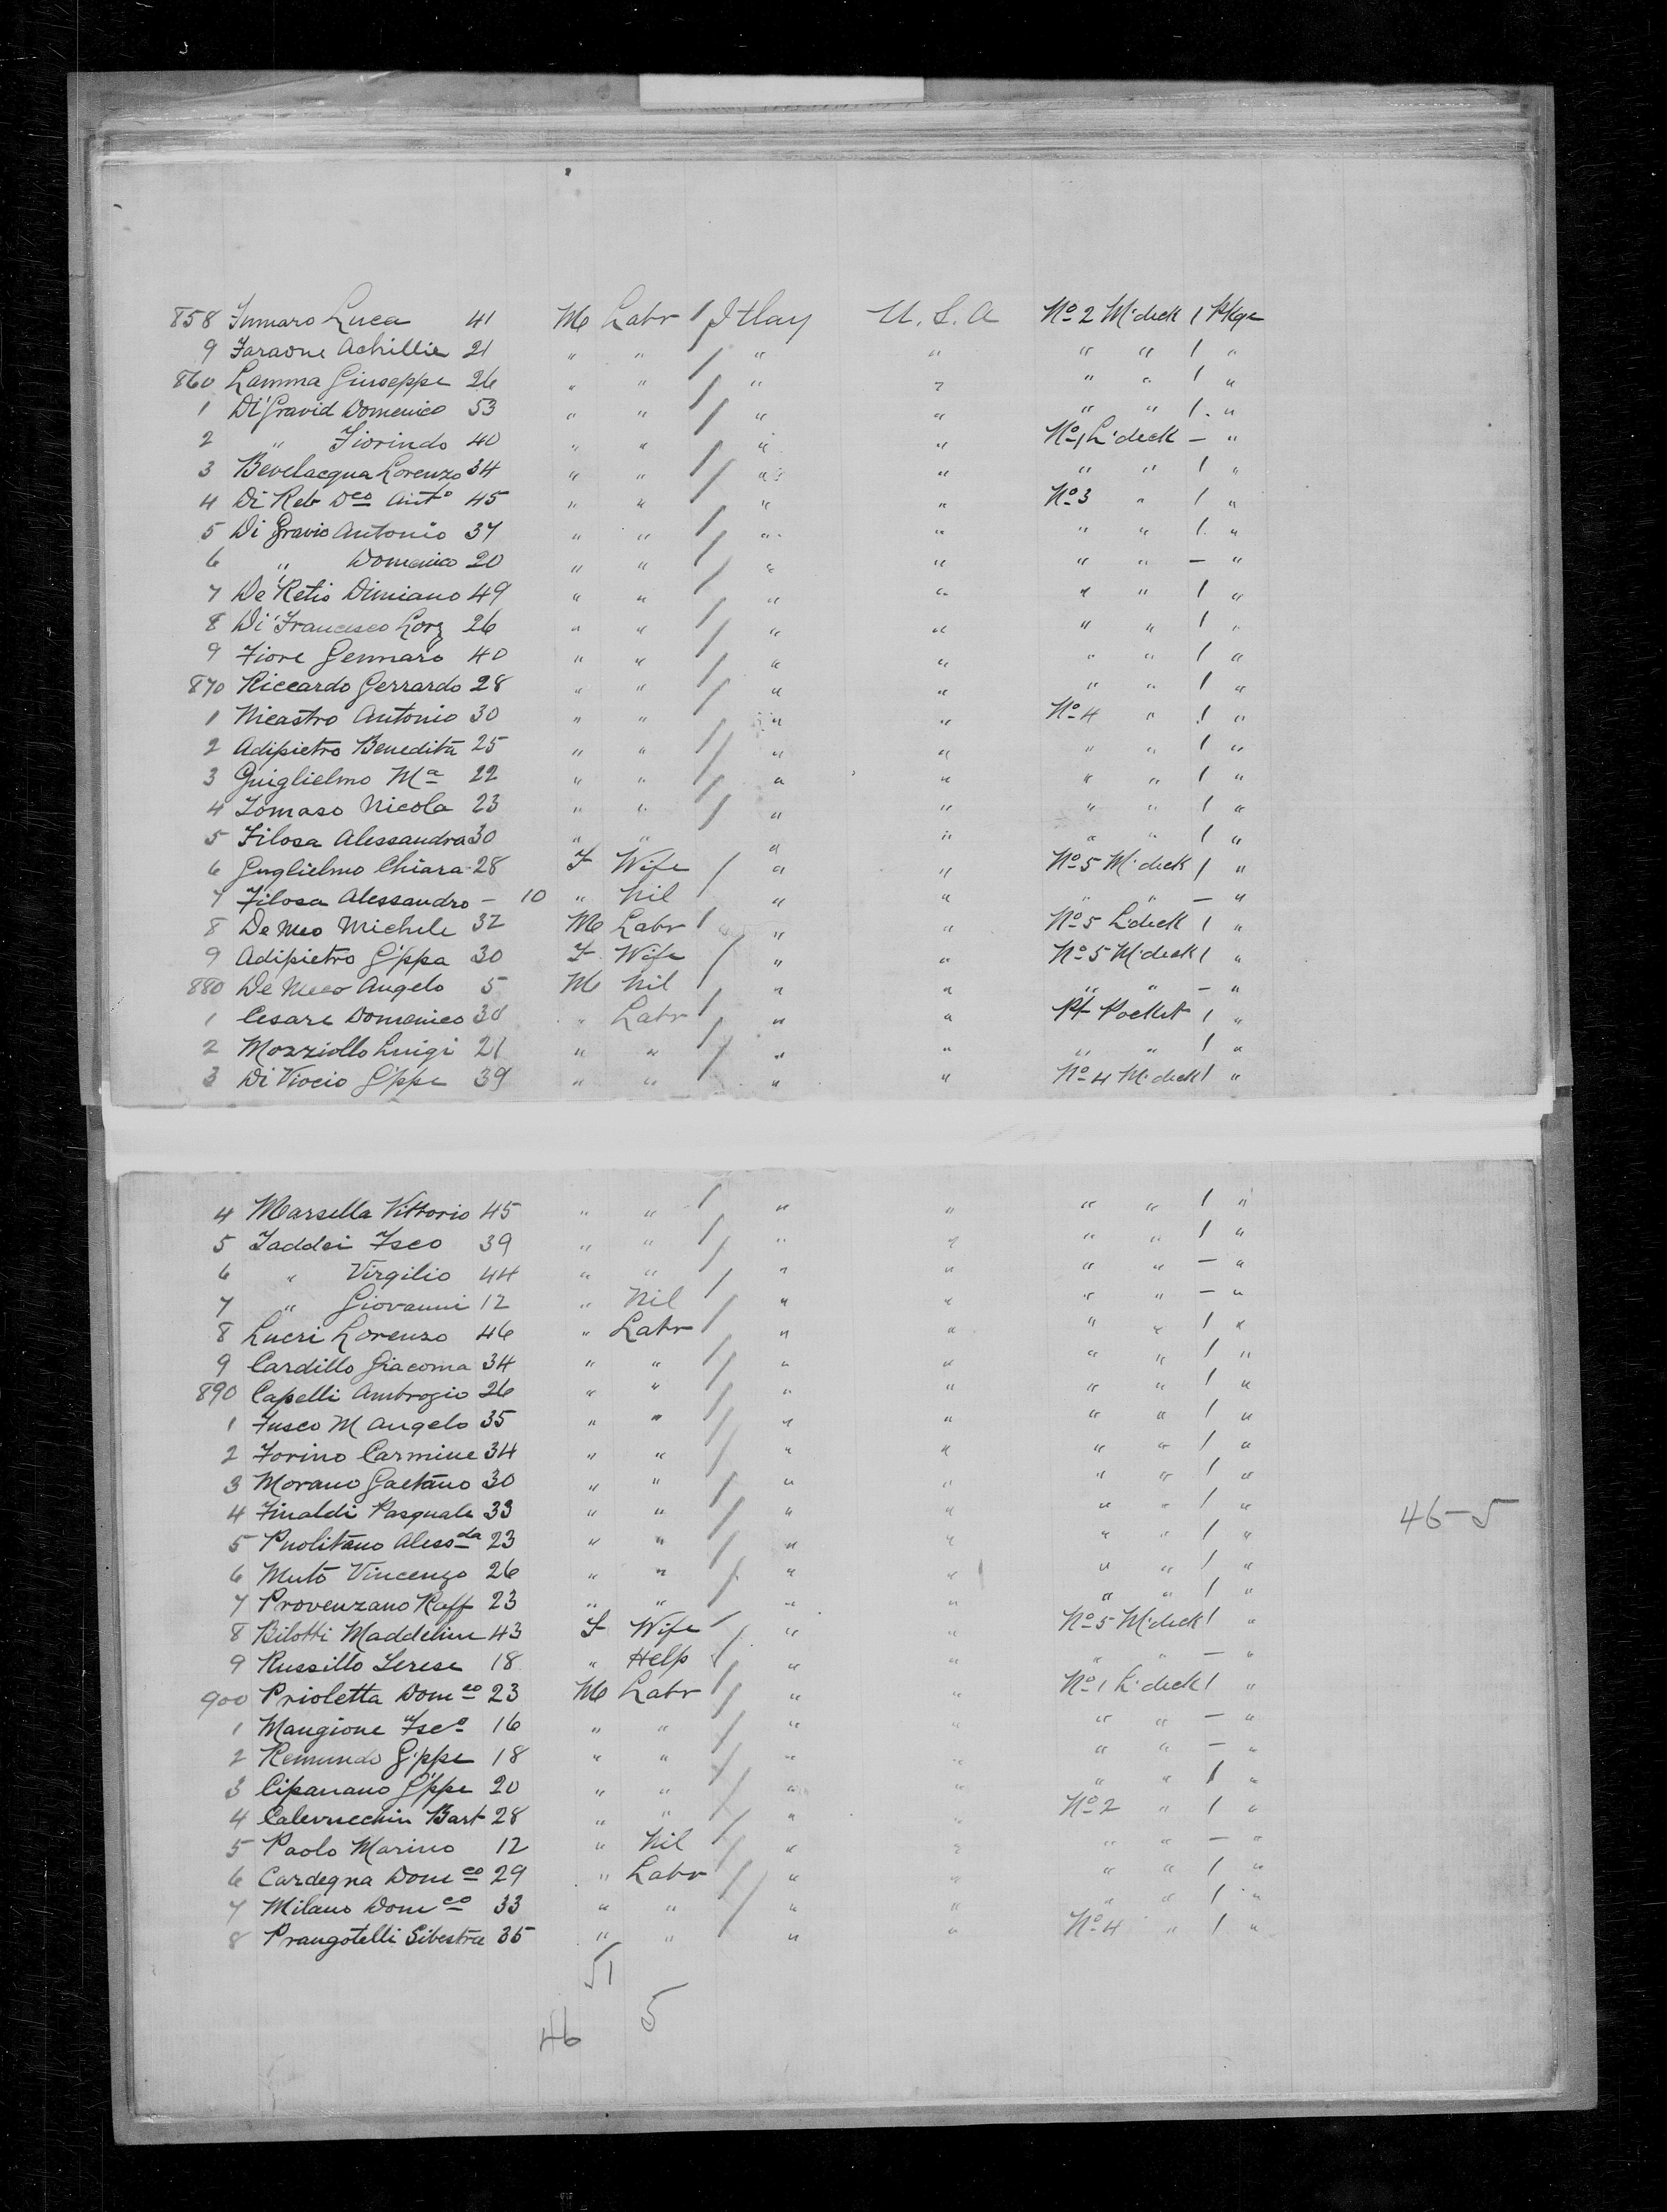 858 Inmaro Luca 41 M Labr / Itlay U.S.A No 2 M.deck 1 Pkge
9 Faraone Achillie 21 " " / " " " " 1 "
860 Lamma Giuseppe 26 " " / " " " " 1 "
1 Di Gravid Domenico 53 " " / " " " " 1 "
2 " Fiorindo 40 " " / " " No 1 L.deck — "
3 Bevelacqua Lorenzo 34 " " / " " " " 1 "
4 Di Reb Dco Anto 45 " " / " " No 3 " 1 "
5 Di Gravio Antonio 37 " " / " " " " 1 "
6 " Domenico 20 " " / " " " " — "
7 De Retis Dimiano 49 " " / " " " " 1 "
8 Di Francesco Lorz 26 " " / " " " " 1 "
9 Fiore Gennaro 40 " " / " " " " 1 "
870 Riccardo Gerrardo 28 " " / " " " " 1 "
1 Nicastro Antonio 30 " " / " " No 4 " 1 "
2 Adipietro Benedita 25 " " / " " " " 1 "
3 Guiglielmo Ma 22 " " / " " " " 1 "
4 Tomaso Nicola 23 " " / " " " " 1 "
5 Filosa Alessandra 30 " " / " " " " 1 "
6 Guglielmo Chiara 28 F Wife / " " No 5 M.deck 1 "
7 Filosa Alessandro — 10 " Nil " " " " — "
8 De Meo Michele 32 M Labr / " " No 5 L.deck 1 "
9 Adipietro G'ppa 30 F Wife / " " No 5 M.deck 1 "
880 De Meco Angelo 5 M Nil / " " " " — "
1 Cesare Domenico 38 " Labr / " " Pt Pocket 1 "
2 Mozziollo Luigi 21 " " / " " " " 1 "
3 Di Viocio G'ppe 39 " " / " " No 4 M.deck 1 "
4 Marsella Vittorio 45 " " / " " " " 1 "
5 Taddei Fsco 39 " " / " " " " 1 "
6 " Virgilio 44 " " / " " " " — "
7 " Giovanni 12 " Nil / " " " " — "
8 Lucri Lorenzo 46 " Labr / " " " " 1 "
9 Cardillo Giacoma 34 " " / " " " " 1 "
890 Capelli Ambrogio 26 " " / " " " " 1 "
1 Fusco M Angelo 35 " " / " " " " 1 "
2 Forino Carmine 34 " " / " " " " 1 "
3 Morano Gaetano 30 " " / " " " " 1 "
4 Finaldi Pasquale 33 " " / " " " " 1 "
46-5
5 Puolitano Alessda 23 " " / " " " " 1 "
6 Muto Vincenzo 26 " " / " " " " 1 "
7 Provenzano Raff 23 " " / " " " " 1 "
8 Bilotti Maddeline 43 F Wife / " " No 5 M.deck 1 "
9 Russillo Terese 18 " Help / " " " " — "
900 Prioletta Domco 23 M Labr / " " No 1 L.deck 1 "
1 Mangione Fsco 16 " " / " " " " — "
2 Remundo G'ppe 18 " " / " " " " — "
3 Cipanano G'ppe 20 " " / " " " " 1 "
4 Calevucchin Bart 28 " " / " " No 2 " 1 "
5 Paolo Marino 12 " Nil / " " " " — "
6 Cardegna Domco 29 " Labr / " " " " 1 "
7 Milano Domco 33 " " / " " " " 1 "
8 Prangotelli Silvestra 35 " " / " " No 4 " 1 "
51
46 5